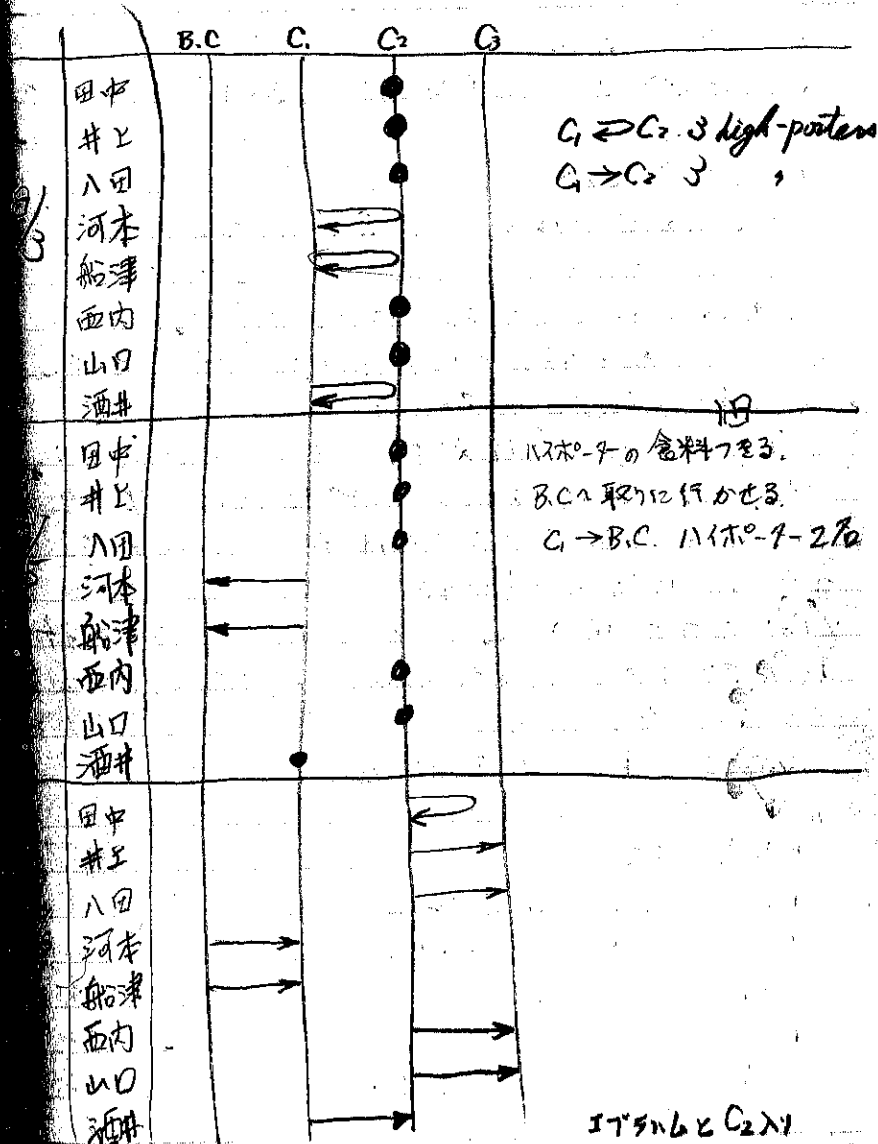 B.C C₁ C₂ C₃
田中
井上
八田
河本
船津
西内
山口
酒井
C₁ ⇄ C₂ 3 high-porters
C₁ → C₂ 3 〃
田中
井上
八田
河本
船津
西内
山口
酒井
ハイポーターの食料つきる.
B.Cへ取りに行かせる.
C₁ → B.C. ハイポーター2名
田中
井上
八田
河本
船津
西内
山口
酒井
エブラハムとC₂入り